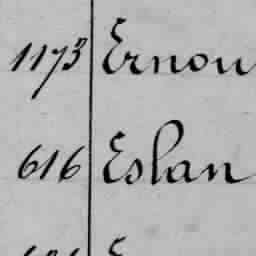 1173 Ernou
616 Eslan